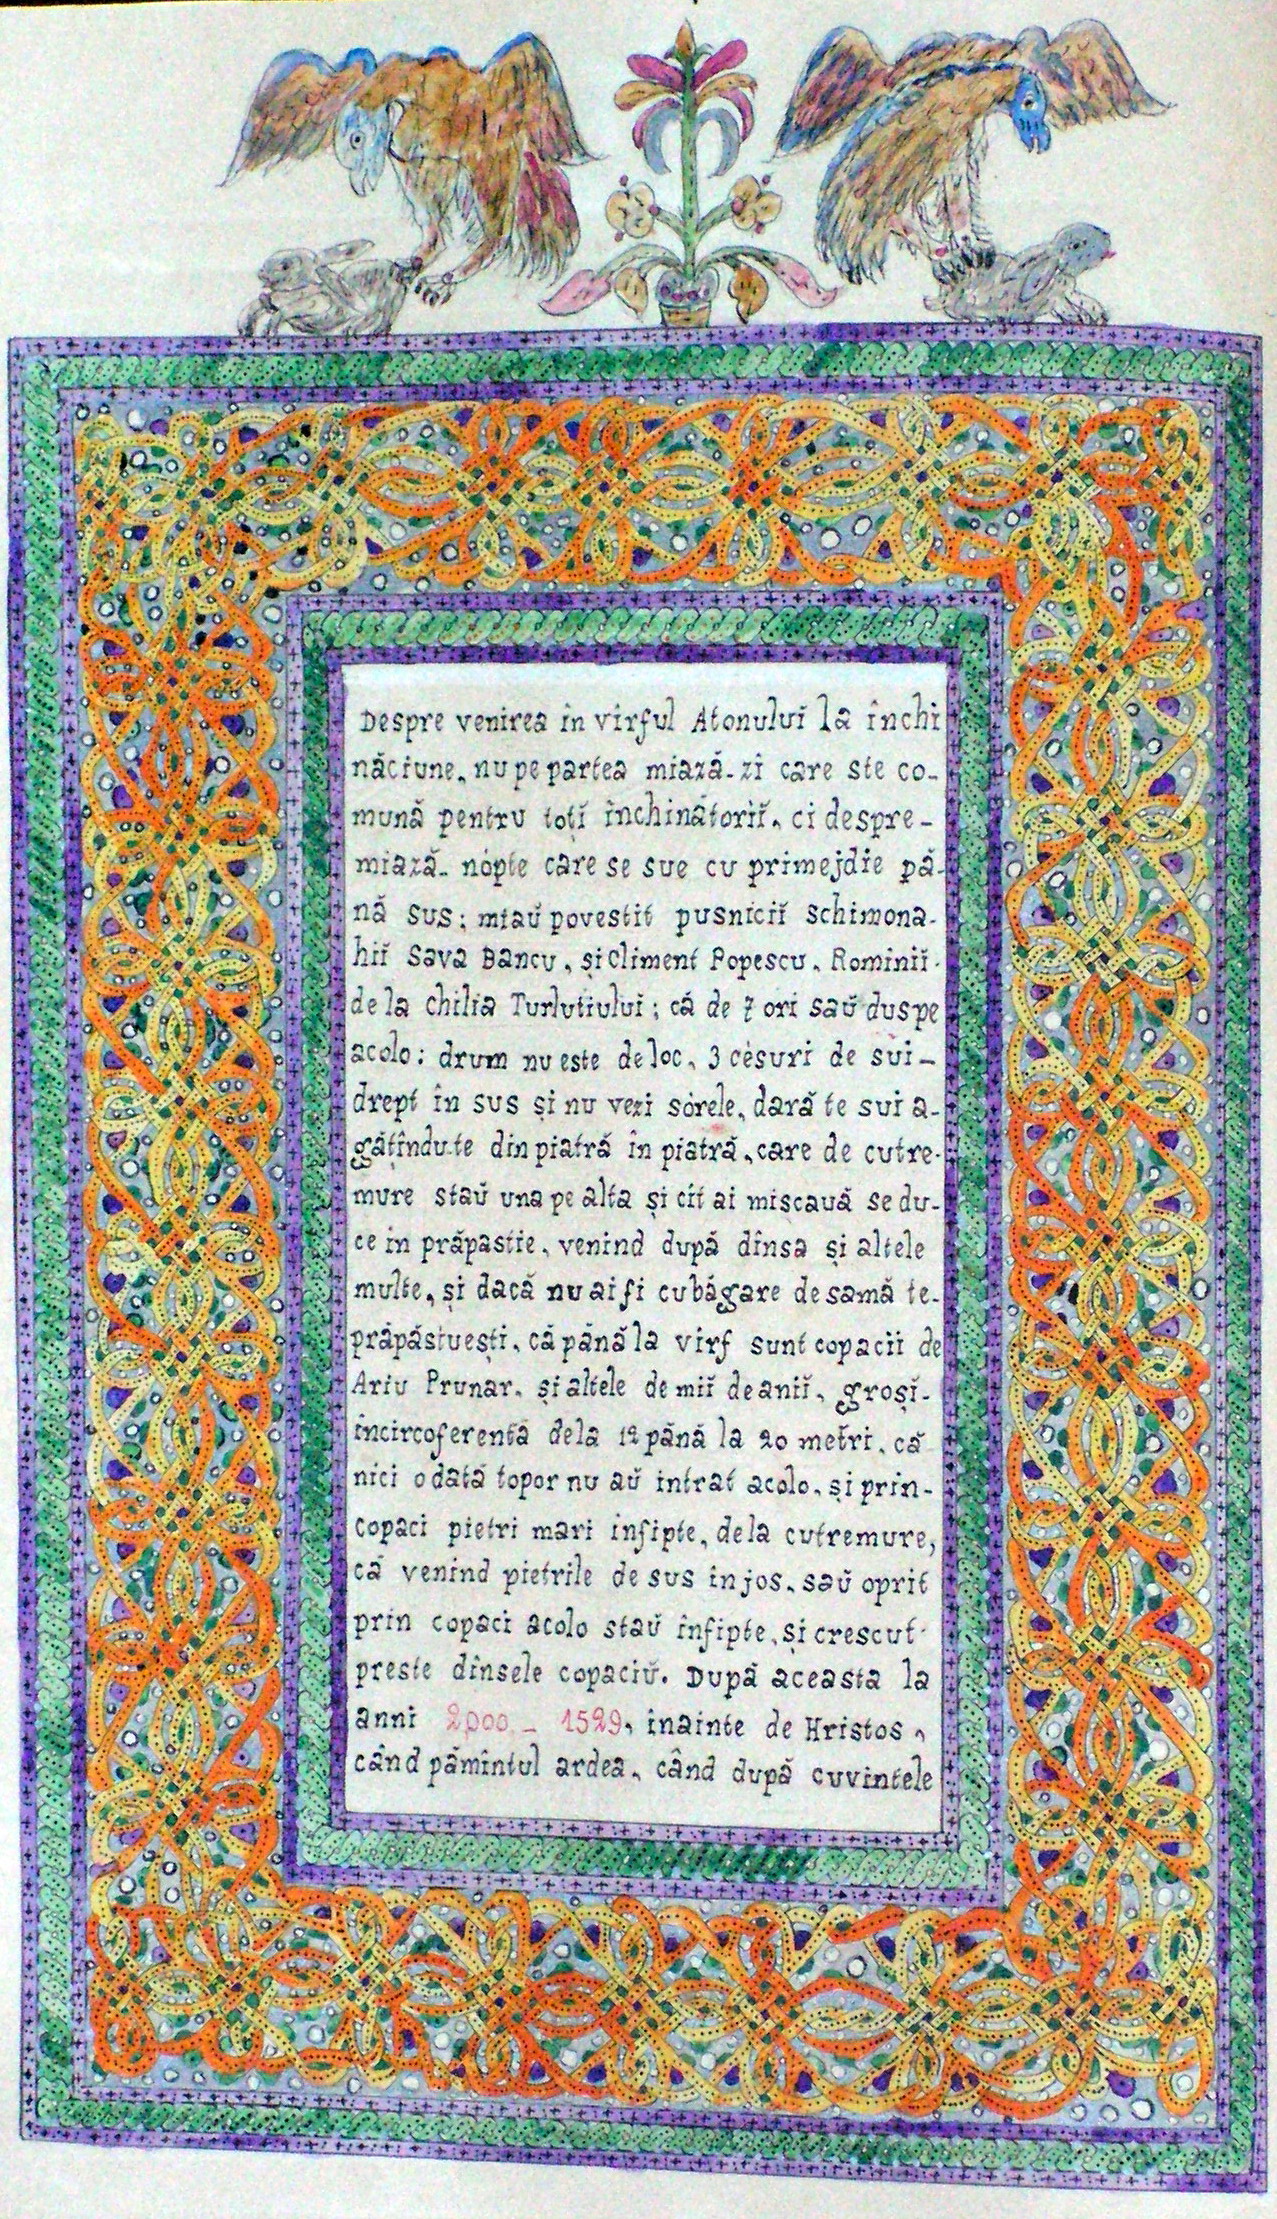 Despre venirea în vîrful Atonuluĭ la închi
năciune, nu pe partea miază-zi care ste co-
mună pentru toțĭ închinătoriĭ, ci despre-
miază-nópte care se sue cu primejdie pă-
nă sus; miaŭ povestit pusniciĭ schimona-
hiĭ Sava Bancu, și Climent Popescu, Rominiĭ
de la chilia Turlutiului; că de 7 ori saŭ dus pe
acolo: drum nu este de loc, 3 césuri de sui-
drept în sus și nu vezi sórele, dară te sui a-
gățîndu-te din piatră în piatră, care de cutre-
mure staŭ una pe alta și cît ai mișcauă se du-
ce in prăpastie, venind după dînsa și altele
multe, și dacă nu ai fi cu băgare de samă te-
prăpăstuești, că până la virf sunt copacii de
Ariu Prunar, și altele de miĭ de aniĭ, groșĭ-
încircoferență dela 12 până la 20 metri, că
nici odată topor nu aŭ intrat acolo, și prin-
copaci pietri mari infipte, dela cutremure,
că venind pietrile de sus în jos, saŭ oprit
prin copaci acolo staŭ înfipte, și crescut
preste dînsele copaciŭ. După aceasta la
anni 2000 - 1529, inainte de Hristos,
când pămîntul ardea, când după cuvintele